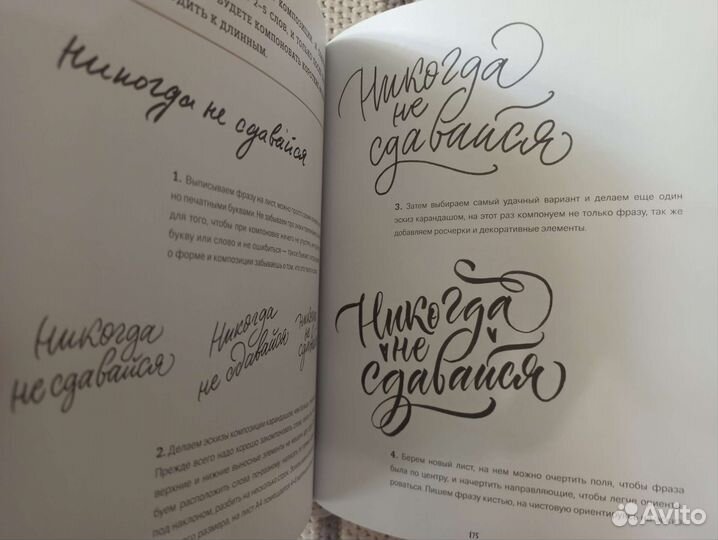 КОМПОЗИЦИИ. А
2–5 СЛОВ, И ТОЛЬКО
БУДЕТЕ КОМПОНОВАТЬ
ДИТЬ К ДЛИННЫМ.
никогда не сдавайся
1. Выписываем фразу на лист, можно просто
но печатными буквами. Не забываем про знаки
для того, чтобы при компоновке ничего не упустить
букву или слово и не ошибиться —
о форме и композиции забываешь о том, что
Никогда
не сдавайся
Никогда
не сдавайся
Никогда
не
2. Делаем эскизы композиции карандашом,
Прежде всего надо хорошо закомпоновать
верхние и нижние выносные элементы не
буем расположить слова
под наклоном, разбить на несколько строк.
го размера, на лист А4
Никогда
не
сдавайся
3. Затем выбираем самый удачный вариант и делаем еще один
эскиз карандашом, на этот раз компонуем не только фразу, так же
добавляем росчерки и декоративные элементы.
Никогда
не
сдавайся
4. Берем новый лист, на нем можно очертить поля, чтобы фраза
была по центру, и начертить направляющие, чтобы легче ориенти-
роваться. Пишем фразу кистью, на чистовую
175
Avito